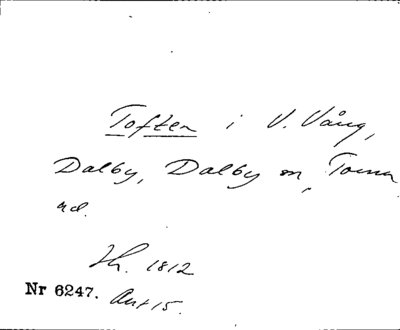 Toften i V. Vång,
Dalby, Dalby sn, Torna
hd.
Sk. 1812
Nr 6247. Akt 15.